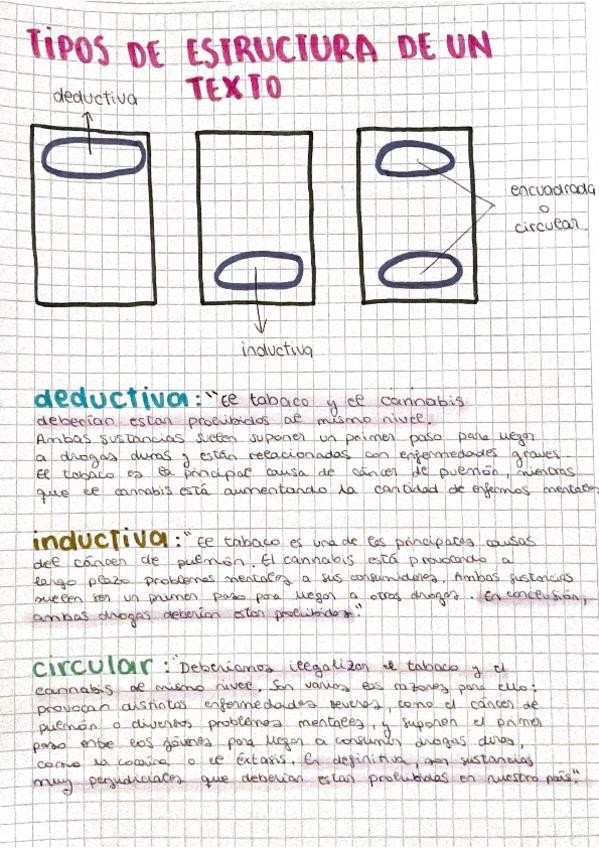 TIPOS DE ESTRUCTURA DE UN
TEXTO
deductiva
encuadrada
o
circular.
inductiva
deductiva: "El tabaco y el cannabis
deberían estar prohibidos al mismo nivel.
Ambas sustancias suelen suponer un primer paso para llegar
a drogas duras y están relacionadas con enfermedades graves.
El tabaco es la principal causa de cáncer de pulmón, mientras
que el cannabis está aumentando la cantidad de enfermos mentales
inductiva: "El tabaco es una de las principales causas
del cáncer de pulmón. El cannabis está provocando a
largo plazo problemas mentales a sus consumidores. Ambas sustancias
suelen ser un primer paso para llegar a otras drogas. En conclusión,
ambas drogas deberían estar prohibidas."
circular: "Deberíamos ilegalizar el tabaco y el
cannabis al mismo nivel. Son varias las razones para ello:
provocan distintas enfermedades severas, como el cáncer de
pulmón o diversos problemas mentales, y suponen el primer
paso entre los jóvenes para llegar a consumir drogas duras,
como la cocaína o el éxtasis. En definitiva, son sustancias
muy perjudiciales que deberían estar prohibidas en nuestro país."